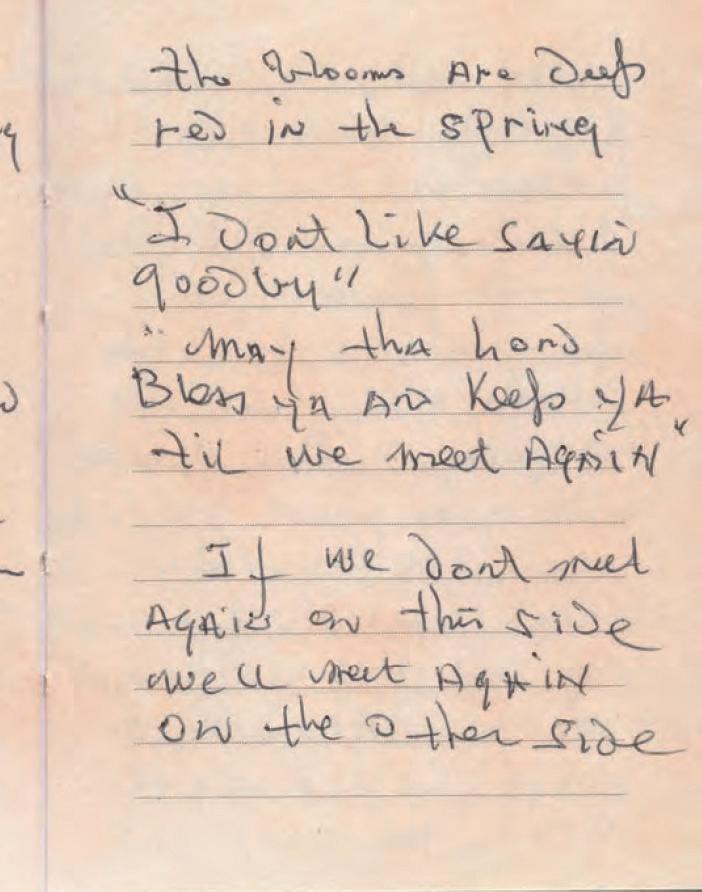 the blooms are deep
red in the spring
"I Dont Like sayin
goodby"
"may tha Lord
Bless ya and Keep ya
til we meet Again"
If we dont meet
Again on this side
we'll meet Again
on the other side